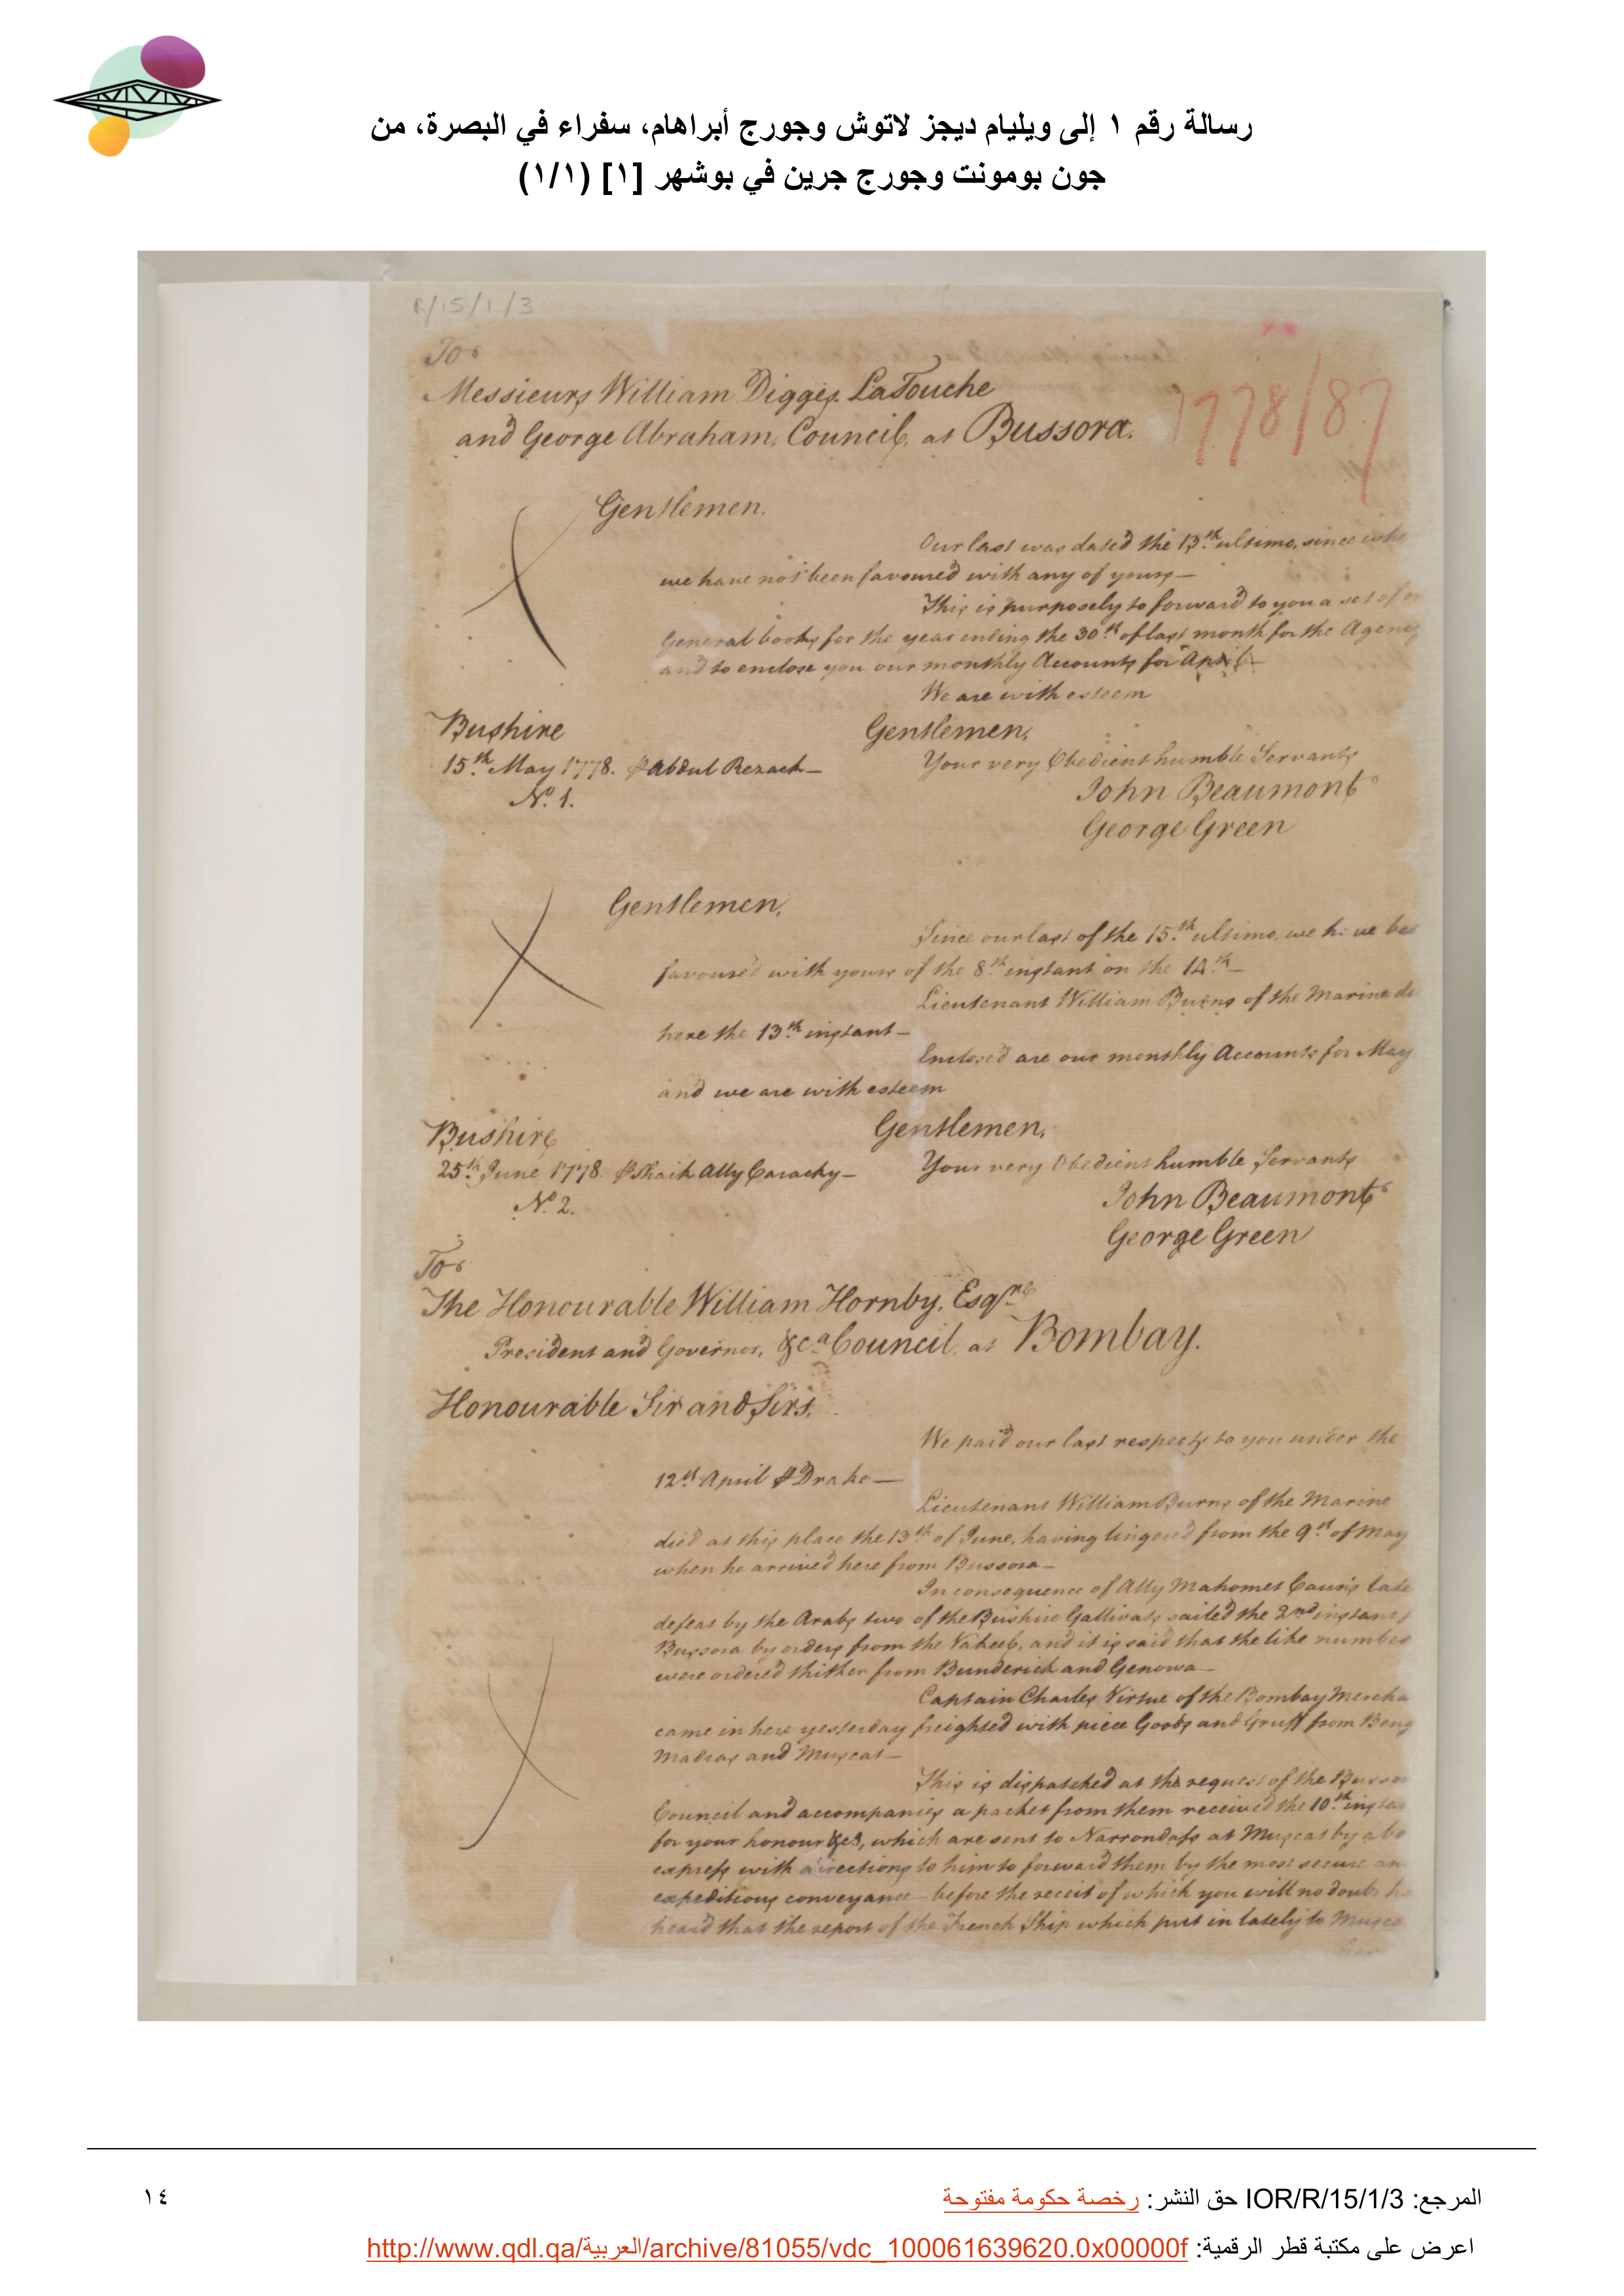 رسالة رقم ١ إلى ويليام ديجز لاتوش وجورج أبراهام، سفراء في البصرة، من
جون بومونت وجورج جرين في بوشهر [١] (١/١)
R/15/1/3
To
Messieurs William Digges LaTouche
and George Abraham, Council, at Bussora.
1778/87
Gentlemen,
Our last was dated the 13th ultimo, since
we have not been favoured with any of yours—
This is purposely to forward to you a set of
General books for the year ending the 30th of last month for the Agency
and to enclose you our monthly Accounts for April—
We are with esteem
Gentlemen,
Bushire
15th May 1778. ⅌ Abdul Rezack—
Your very Obedient humble Servants
No. 1.
John Beaumont
George Green
Gentlemen,
Since our last of the 15th ultimo, we have
favoured with yours of the 8th instant on the 14th—
Lieutenant William Burns of the Marine
here the 13th instant—
Enclosed are our monthly Accounts for May
and we are with esteem
Gentlemen,
Bushire
25th June 1778. ⅌ Shaik Ally Carachy—
Your very Obedient humble Servants
No. 2.
John Beaumont
George Green
To
The Honourable William Hornby, Esqre
President and Governor, &ca Council, at Bombay.
Honourable Sir and Sirs,
We paid our last respects to you under the
12th April ⅌ Drake—
Lieutenant William Burns of the Marine
died at this place the 13th of June, having lingered from the 9th of May
when he arrived here from Bussora—
In consequence of Ally Mahomet Caun's late
defeat by the Arabs two of the Bushire Gallivats sailed the 2nd instant
Bussora by orders from the Vakeel, and it is said that the like number
were ordered thither from Bunderick and Genowa—
Captain Charles Virtue of the Bombay
came in here yesterday freighted with piece Goods and Gruff from
Madras and Muscat—
This is dispatched at the request of the
Council and accompanies a packet from them received the 10th
for your honour &ca, which are sent to Narrondass at Muscat by
express with directions to him to forward them by the most secure
expeditious conveyance—before the receit of which you will no doubt
heard that the report of the French Ship which put in lately to
المرجع: IOR/R/15/1/3 حق النشر: رخصة حكومة مفتوحة
١٤
اعرض على مكتبة قطر الرقمية: http://www.qdl.qa/العربية/archive/81055/vdc_100061639620.0x00000f